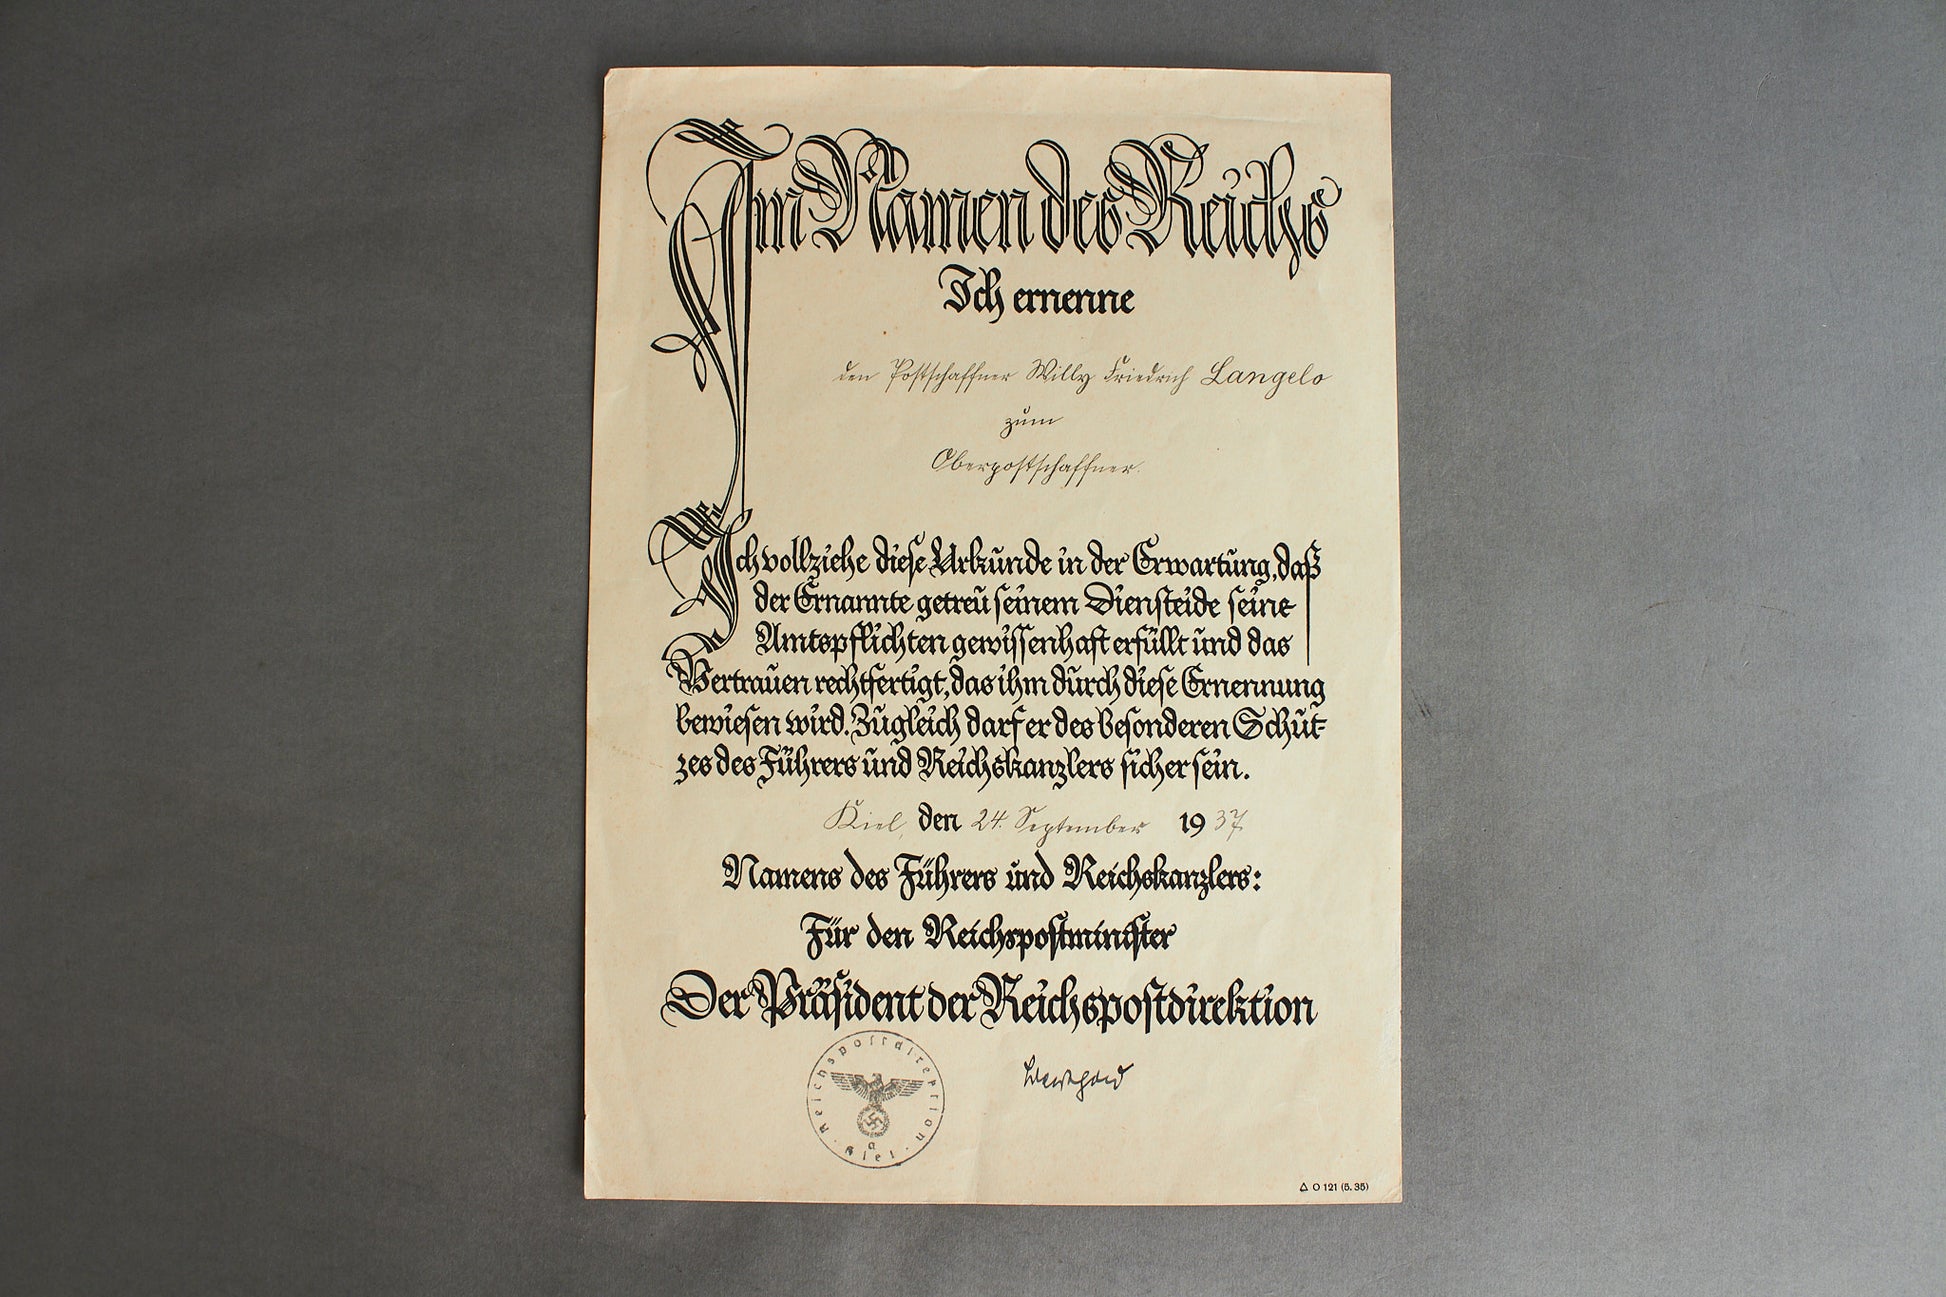 Im Namen des Reichs
Ich ernenne
den Postschaffner Willy Friedrich Langelo
zum
Oberpostschaffner.
Ich vollziehe diese Urkunde in der Erwartung, daß
der Ernannte getreu seinem Diensteide seine
Amtspflichten gewissenhaft erfüllt und das
Vertrauen rechtfertigt, das ihm durch diese Ernennung
bewiesen wird. Zugleich darf er des besonderen Schut-
zes des Führers und Reichskanzlers sicher sein.
Kiel, den 24. September 1937
Namens des Führers und Reichskanzlers:
Für den Reichspostminister
Der Präsident der Reichspostdirektion
Reichspostdirektion
a
Kiel
Δ O 121 (5. 35)